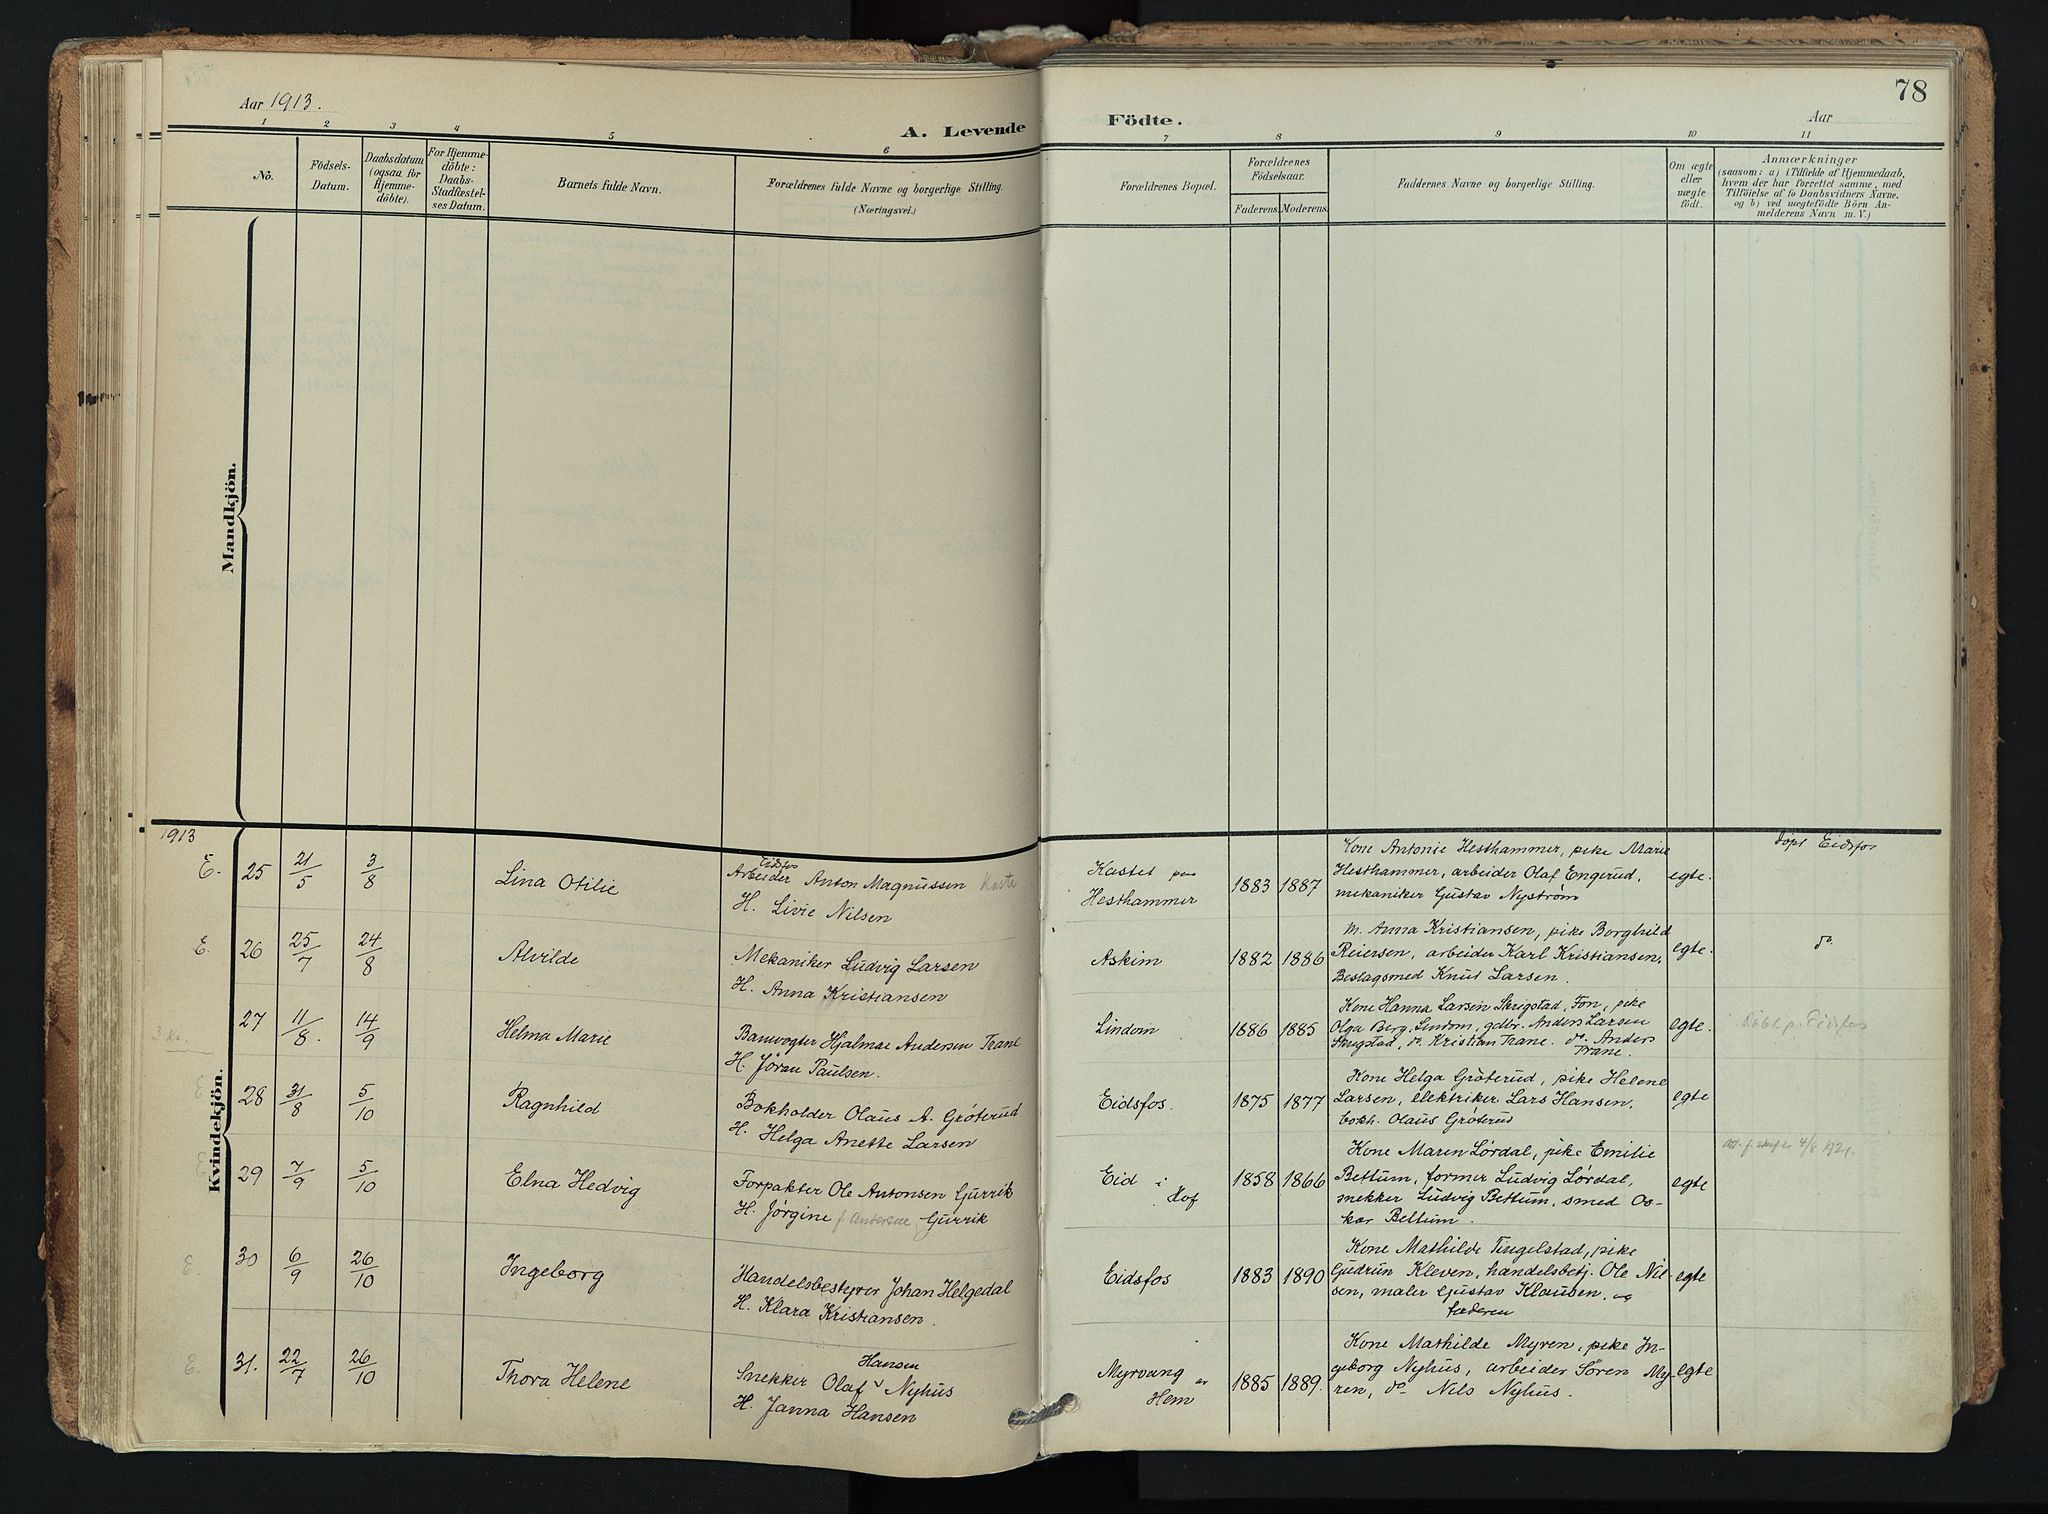 78
Aar 1913.
A. Levende Födte.
Aar
1 2 3 4 5 6 7 8 9 10 11
No.
Födsels-Datum.
Daabsdatum (ogsaa for Hjemmedöbte).
For Hjemmedöbte: Daabs-Stadfæstelses Datum.
Barnets fulde Navn.
Forældrenes fulde Navne og borgerlige Stilling.
(Næringsvei.)
Forældrenes Bopæl.
Forældrenes Födselsaar.
Faderens. Moderens.
Faddernes Navne og borgerlige Stilling.
Om ægte eller uægte født.
Anmærkninger
(saasom: a) i Tilfælde af Hjemmedaab,
hvem der har forrettet samme, med
Tilföielse af to Daabsvidners Navne,
og b) ved uægtefödte Börn An-
melderens Navn m. V.)
Mandkjön.
Kvindekjön.
1913
E. 25 21/5 3/8 Lina Otilie
Eidsfos
Arbeider Anton Magnussen
H. Livie Nilsen
Kastet paa
Hesthammer
1883 1887
Kone Antonie Hesthammer, pike Marie
Hesthammer, arbeider Olaf Engerud,
mekaniker Gustav Nystrøm
egte.
døpt Eidsfos
E. 26 25/7 24/8 Alvilde
Mekaniker Ludvig Larsen
H. Anna Kristiansen
Askim
1882 1886
m. Anna Kristiansen, pike Borghild
Reiersen, arbeider Karl Kristiansen,
Beslagsmed Knut Larsen.
egte.
do.
27 11/8. 14/9 Helma Marie
Banevogter Hjalmar Andersen Trane
H. Jøran Paulsen.
Lindom
1886 1885
Kone Hanna Larsen Skrigstad, Fon, pike
Olga Berg, Lindom, gdbr. Anders Larsen
Skrigstad, do. Kristian Trane. do. Anders
Trane.
egte.
Døbt p. Eidsfos
28 31/8 5/10 Ragnhild
Bokholder Olaus A. Gróterud
H. Helga Anette Larsen
Eidsfos.
1875 1877
Kone Helga Gróterud, pike Helene
Larsen, elektriker Lars Hansen,
bokh. Olaus Gróterud
egte
29 7/9 5/10 Elna Hedvig
Forpakter Ole Antonsen Gurrik
H. Jørgine f. Andersen Gurrik
Eid i
Hof
1858 1866
Kone Maren Lørdal, pike Emilie
Bettum, former Ludvig Lørdal,
snekker Ludvig Bettum, smed Os-
kar Bettum.
egte
4/8 1921.
E. 30 6/9 26/10 Ingeborg
Handelsbestyrer Johan Helgedal
H. Klara Kristiansen.
Eidsfos
1883 1890
Kone Mathilde Tingelstad, pike
Gudrun Kleven, handelsbetj. Ole Nil-
sen, maler Gustav Klausen. og
faderen
egte
E. 31. 22/7 26/10 Thora Helene
Hansen
Snekker Olaf v Nyhus
H. Janna Hansen
Myrvang av
Hem
1885 1889.
Kone Mathilde Myren, pike In-
geborg Nyhus, arbeider Søren My-
ren, do Nils Nyhus.
egte